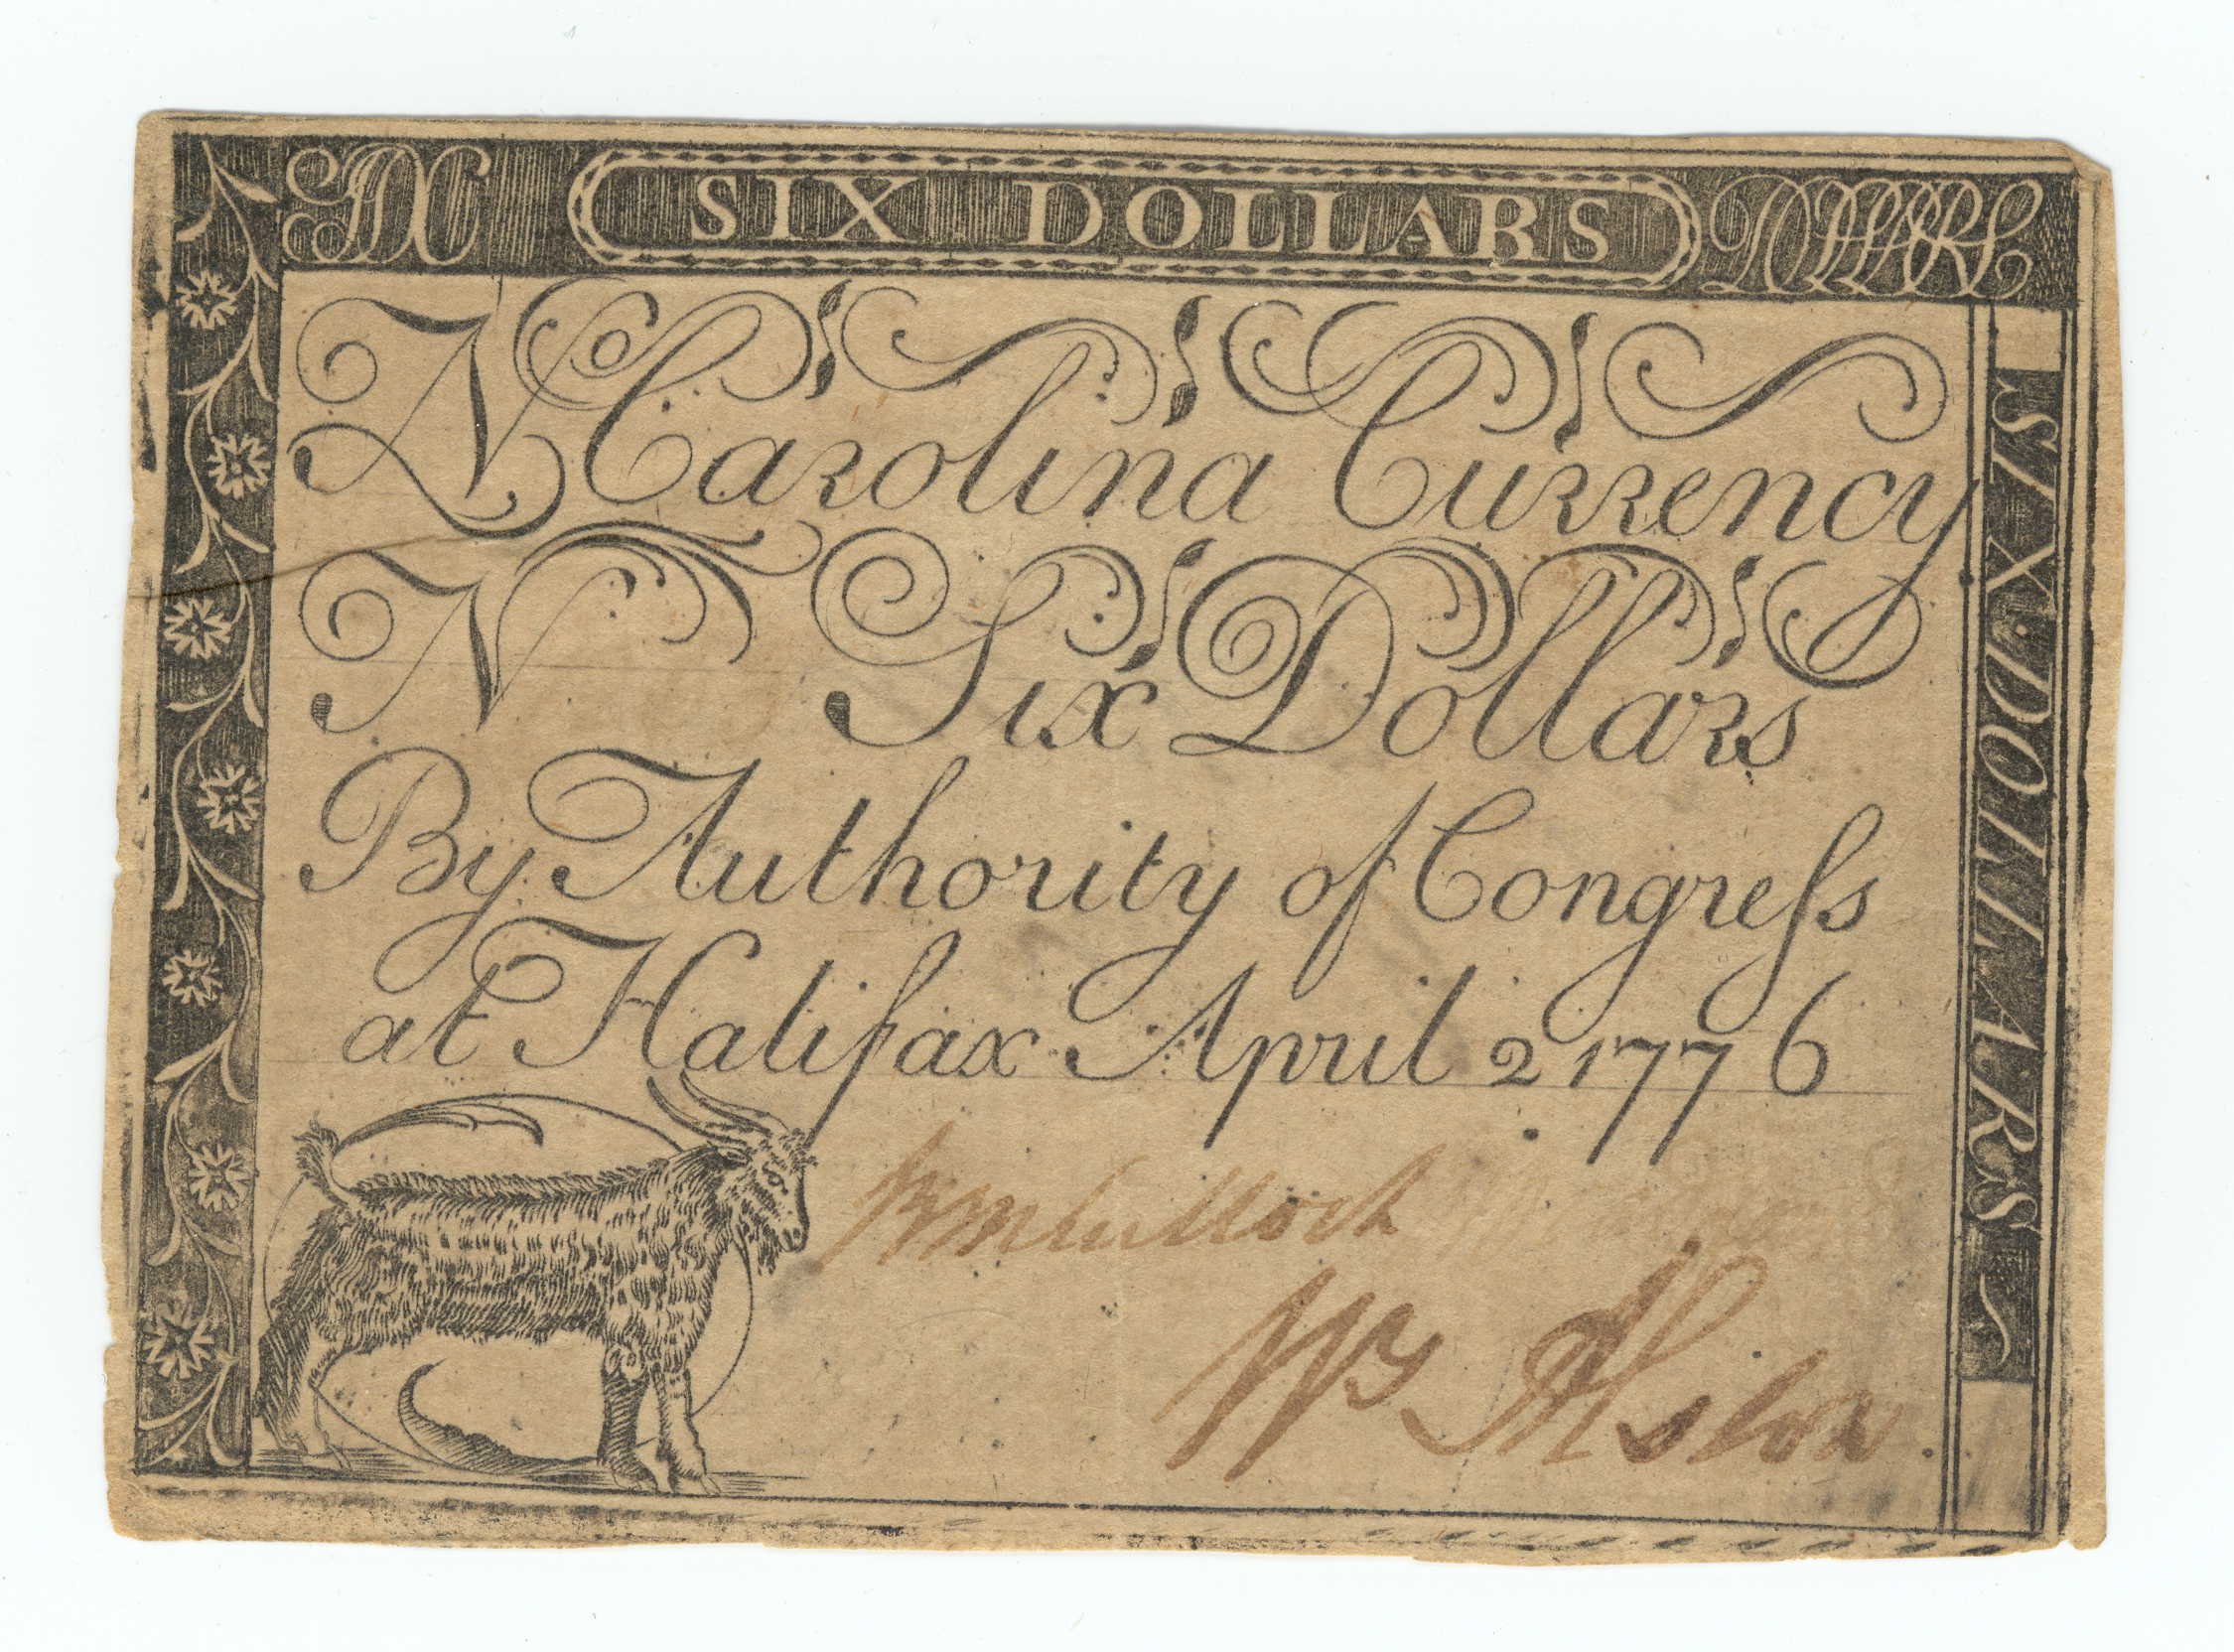 SIX SIX DOLLARS DOLLARS
N Carolina Currency
N Six Dollars
By Authority of Congreſs
at Halifax April 2 1776
SIX DOLLARS
Wm Alston